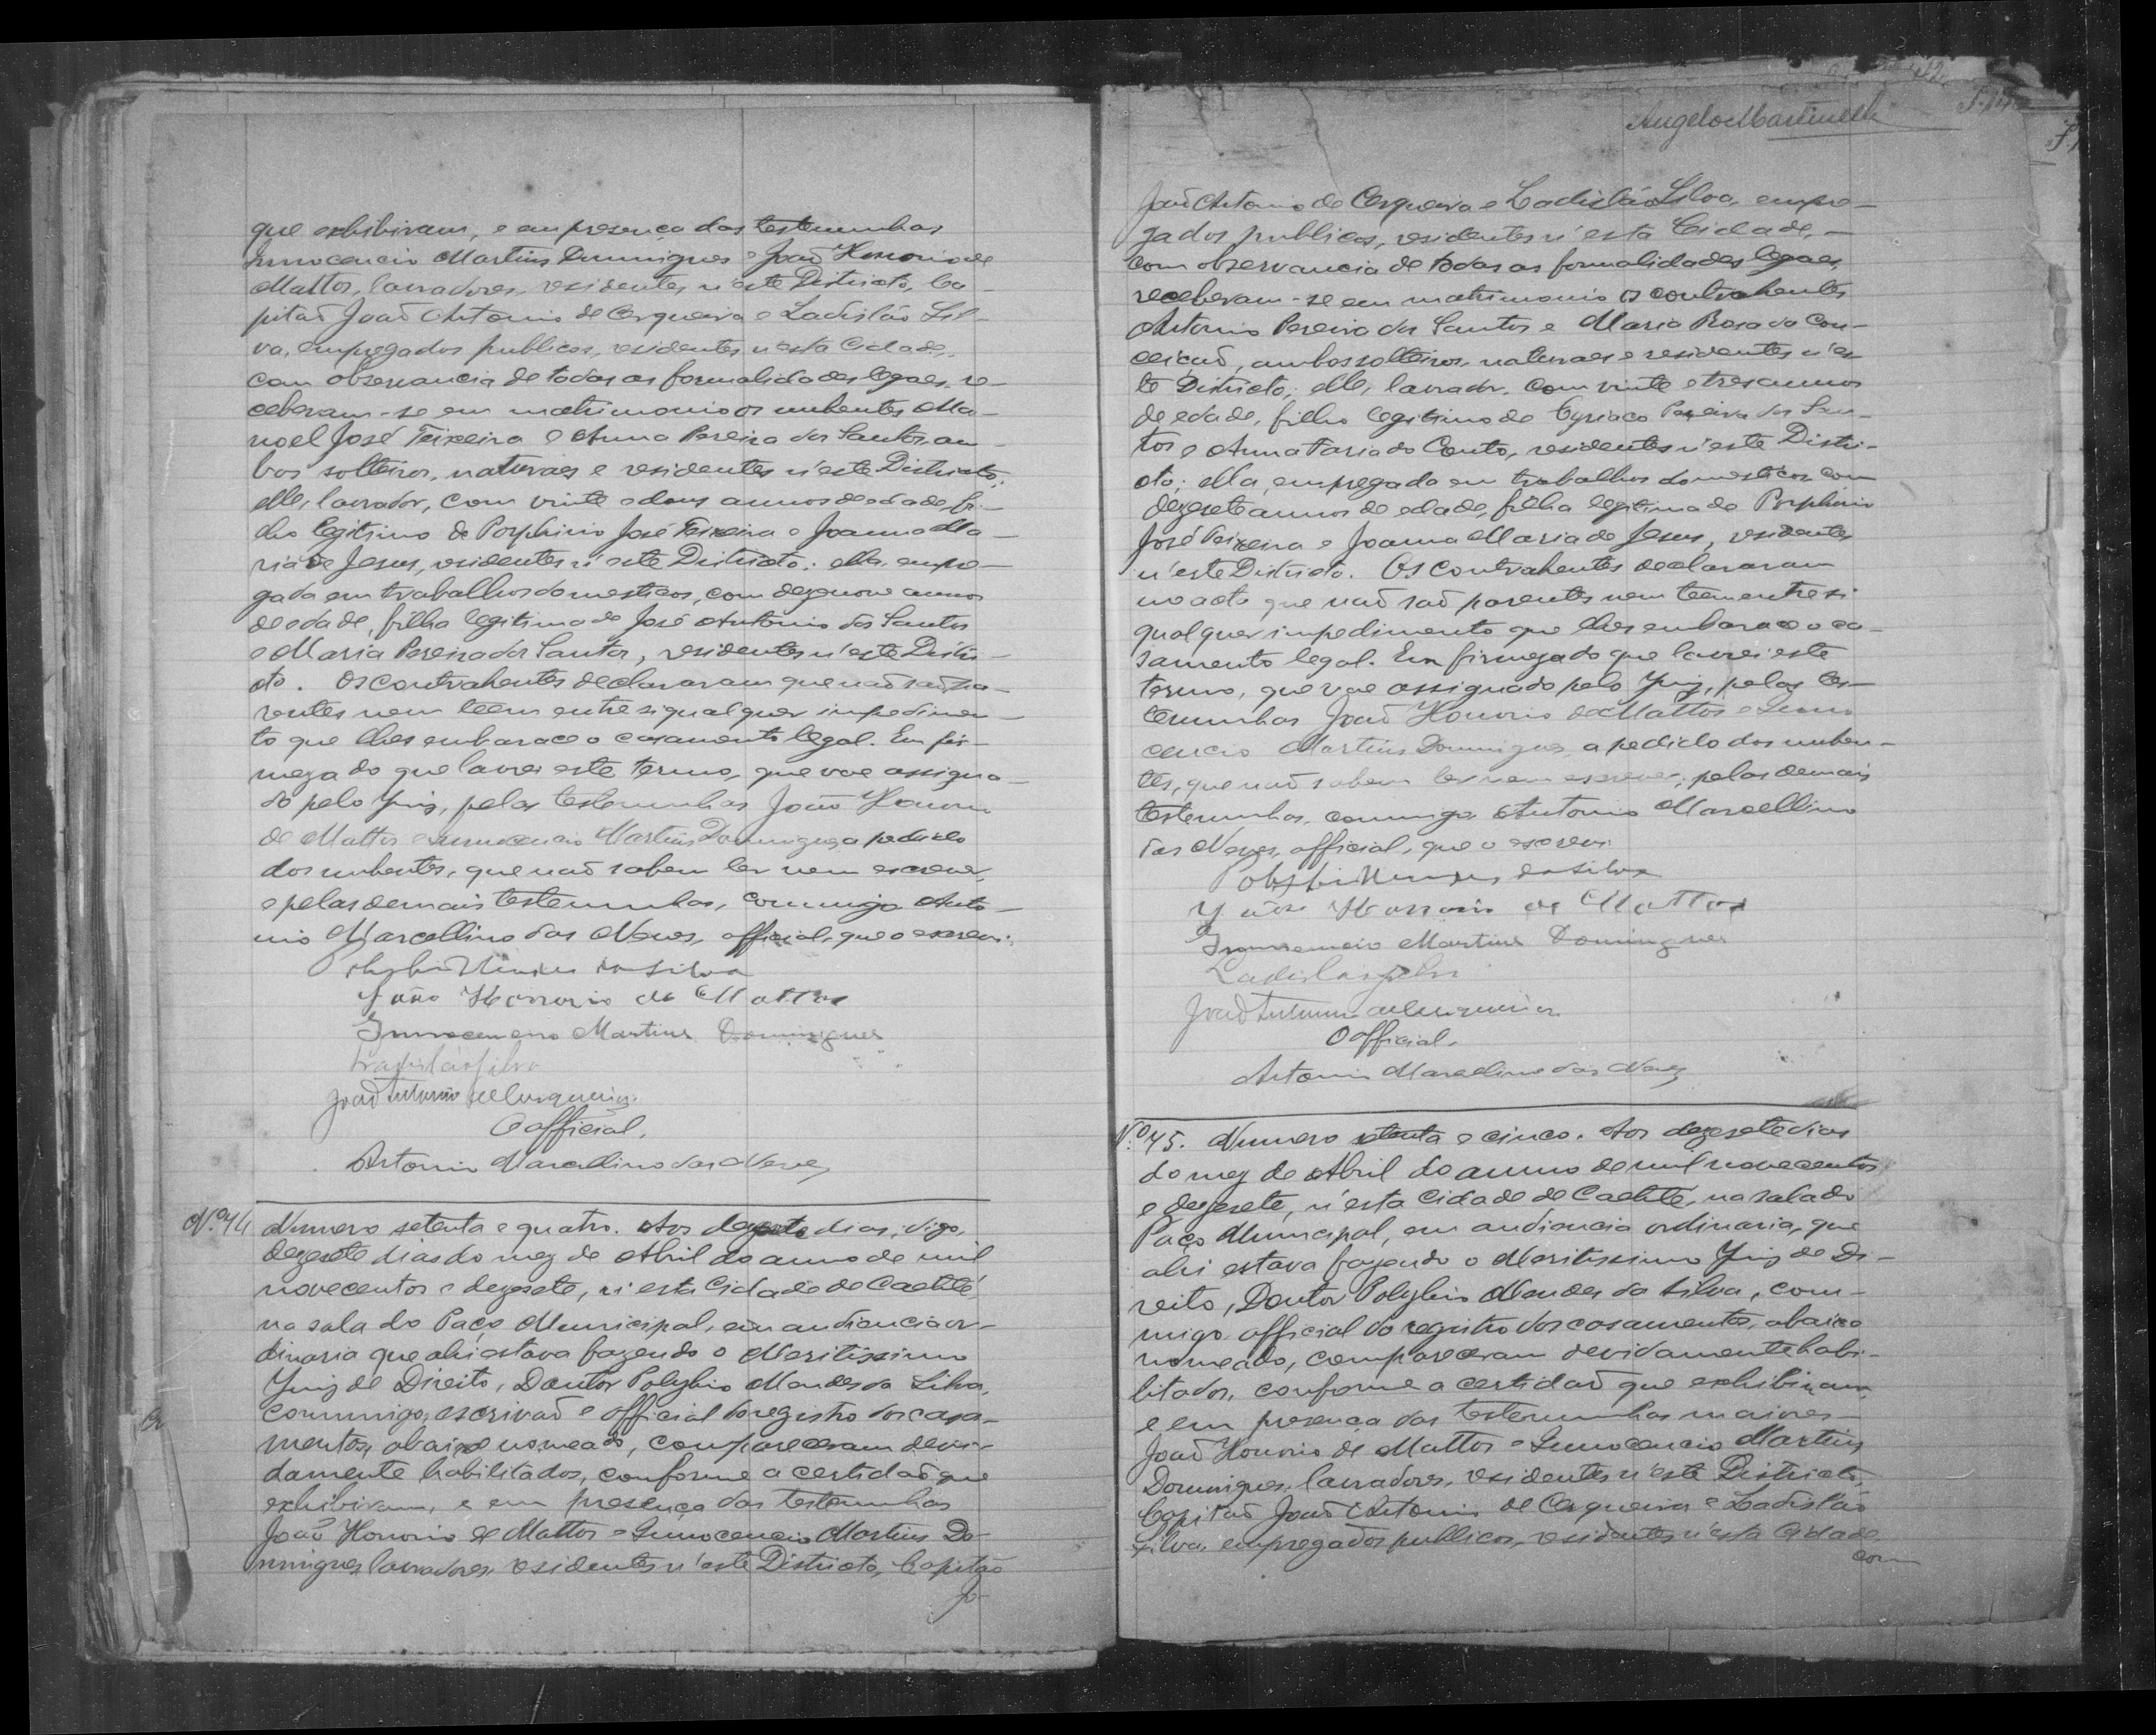 que exhibiram, e em presença das testemunhas
Innocencio Martins Domingues e João Honorio de
Mattos, lavradores, residentes n'este Districto, Ca-
pitão João Antonio de Cerqueira e Ladisláo Sil-
va, empregados publicos, residentes n'esta Cidade,
com observancia de todas as formalidades legaes, re-
ceberam-se em matrimonio os nubentes Ma-
noel José Teixeira e Anna Pereira dos Santos, am-
bos solteiros, naturaes e residentes n'este Districto;
elle, lavrador, com vinte e dous annos de edade, fi-
lho legitimo de Porphirio José Teixeira e Joanna Ma-
ria de Jesus, residentes n'este Districto; ella, empre-
gada em trabalhos domesticos, com dezenove annos
de edade, filha legitima de José Antonio dos Santos
e Maria Pereira dos Santos, residentes n'este Distri-
cto. Os contrahentes declararam que não são pa-
rentes nem teem entre si qualquer impedimen-
to que lhes embarace o casamento legal. Em fir-
meza do que lavrei este termo, que vae assigna-
do pelo Juiz, pelas testemunhas João Honorio
de Mattos e Innocencio Martins Domingues, a pedido
dos nubentes, que não sabem ler nem escrever,
e pelas demais testemunhas, commigo Anto-
nio Marcellino das Neves, official, que o escrevi.
Polybio Mendes da Silva
João Honorio de Mattos
Innocencio Martins Domingues
Ladisláo Silva
João Antonio de Cerqueira
O official,
Antonio Marcellino das Neves
Nº 74 Numero setenta e quatro. Aos dezesete dias, digo,
dezesete dias do mez de Abril do anno de mil
novecentos e dezesete, n'esta Cidade de Caetité,
na sala do Paço Municipal, em audiencia or-
dinaria que ahi estava fazendo o Meritissimo
Juiz de Direito, Doutor Polybio Mendes da Silva,
commigo, escrivão e official do registro dos casa-
mentos, abaixo nomeado, compareceram devi-
damente habilitados, conforme a certidão que
exhibiram, e em presença das testemunhas
João Honorio de Mattos e Innocencio Martins Do-
mingues, lavradores, residentes n'este Districto, Capitão
Jo-
Angelo Martinelli
João Antonio de Cerqueira e Ladisláo Silva, empre-
gados publicos, residentes n'esta Cidade,
com observancia de todas as formalidades legaes,
receberam-se em matrimonio os contrahentes
Antonio Pereira dos Santos e Maria Rosa da Con-
ceição, ambos solteiros, naturaes e residentes n'es-
te Districto; elle, lavrador, com vinte e tres annos
de edade, filho legitimo de Cyriaco Pereira dos San-
tos e Anna Faria do Couto, residentes n'este Distri-
cto; ella, empregada em trabalhos domesticos, com
dezesete annos de edade, filha legitima de Porphirio
José Teixeira e Joanna Maria de Jesus, residentes
n'este Districto. Os contrahentes declararam
no acto que não são parentes nem teem entre si
qualquer impedimento que lhes embarace o ca-
samento legal. Em firmeza do que lavrei este
termo, que vae assignado pelo Juiz, pelas tes-
temunhas João Honorio de Mattos e Inno
cencio Martins Domingues, a pedido dos nuben-
tes, que não sabem ler nem escrever, pelas demais
testemunhas, commigo Antonio Marcellino
das Neves, official, que o escrevi.
Polybio Mendes da Silva
João Honorio de Mattos
Innocencio Martins Domingues
Ladisláo Silva
João Antonio de Cerqueira
O official,
Antonio Marcellino das Neves
Nº 75. Numero setenta e cinco. Aos dezesete dias
do mez de Abril do anno de mil novecentos
e dezesete, n'esta Cidade de Caetité, na sala do
Paço Municipal, em audiencia ordinaria, que
ahi estava fazendo o Meritissimo Juiz de Di-
reito, Doutor Polybio Mendes da Silva, com-
migo, official do registro dos casamentos, abaixo
nomeado, compareceram devidamente habi-
litados, conforme a certidão que exhibiram,
e em presença das testemunhas maiores
João Honorio de Mattos e Innocencio Martins
Domingues, lavradores, residentes n'este Districto,
Capitão João Antonio de Cerqueira e Ladisláo
Silva, empregados publicos, residentes n'esta Cidade,
com